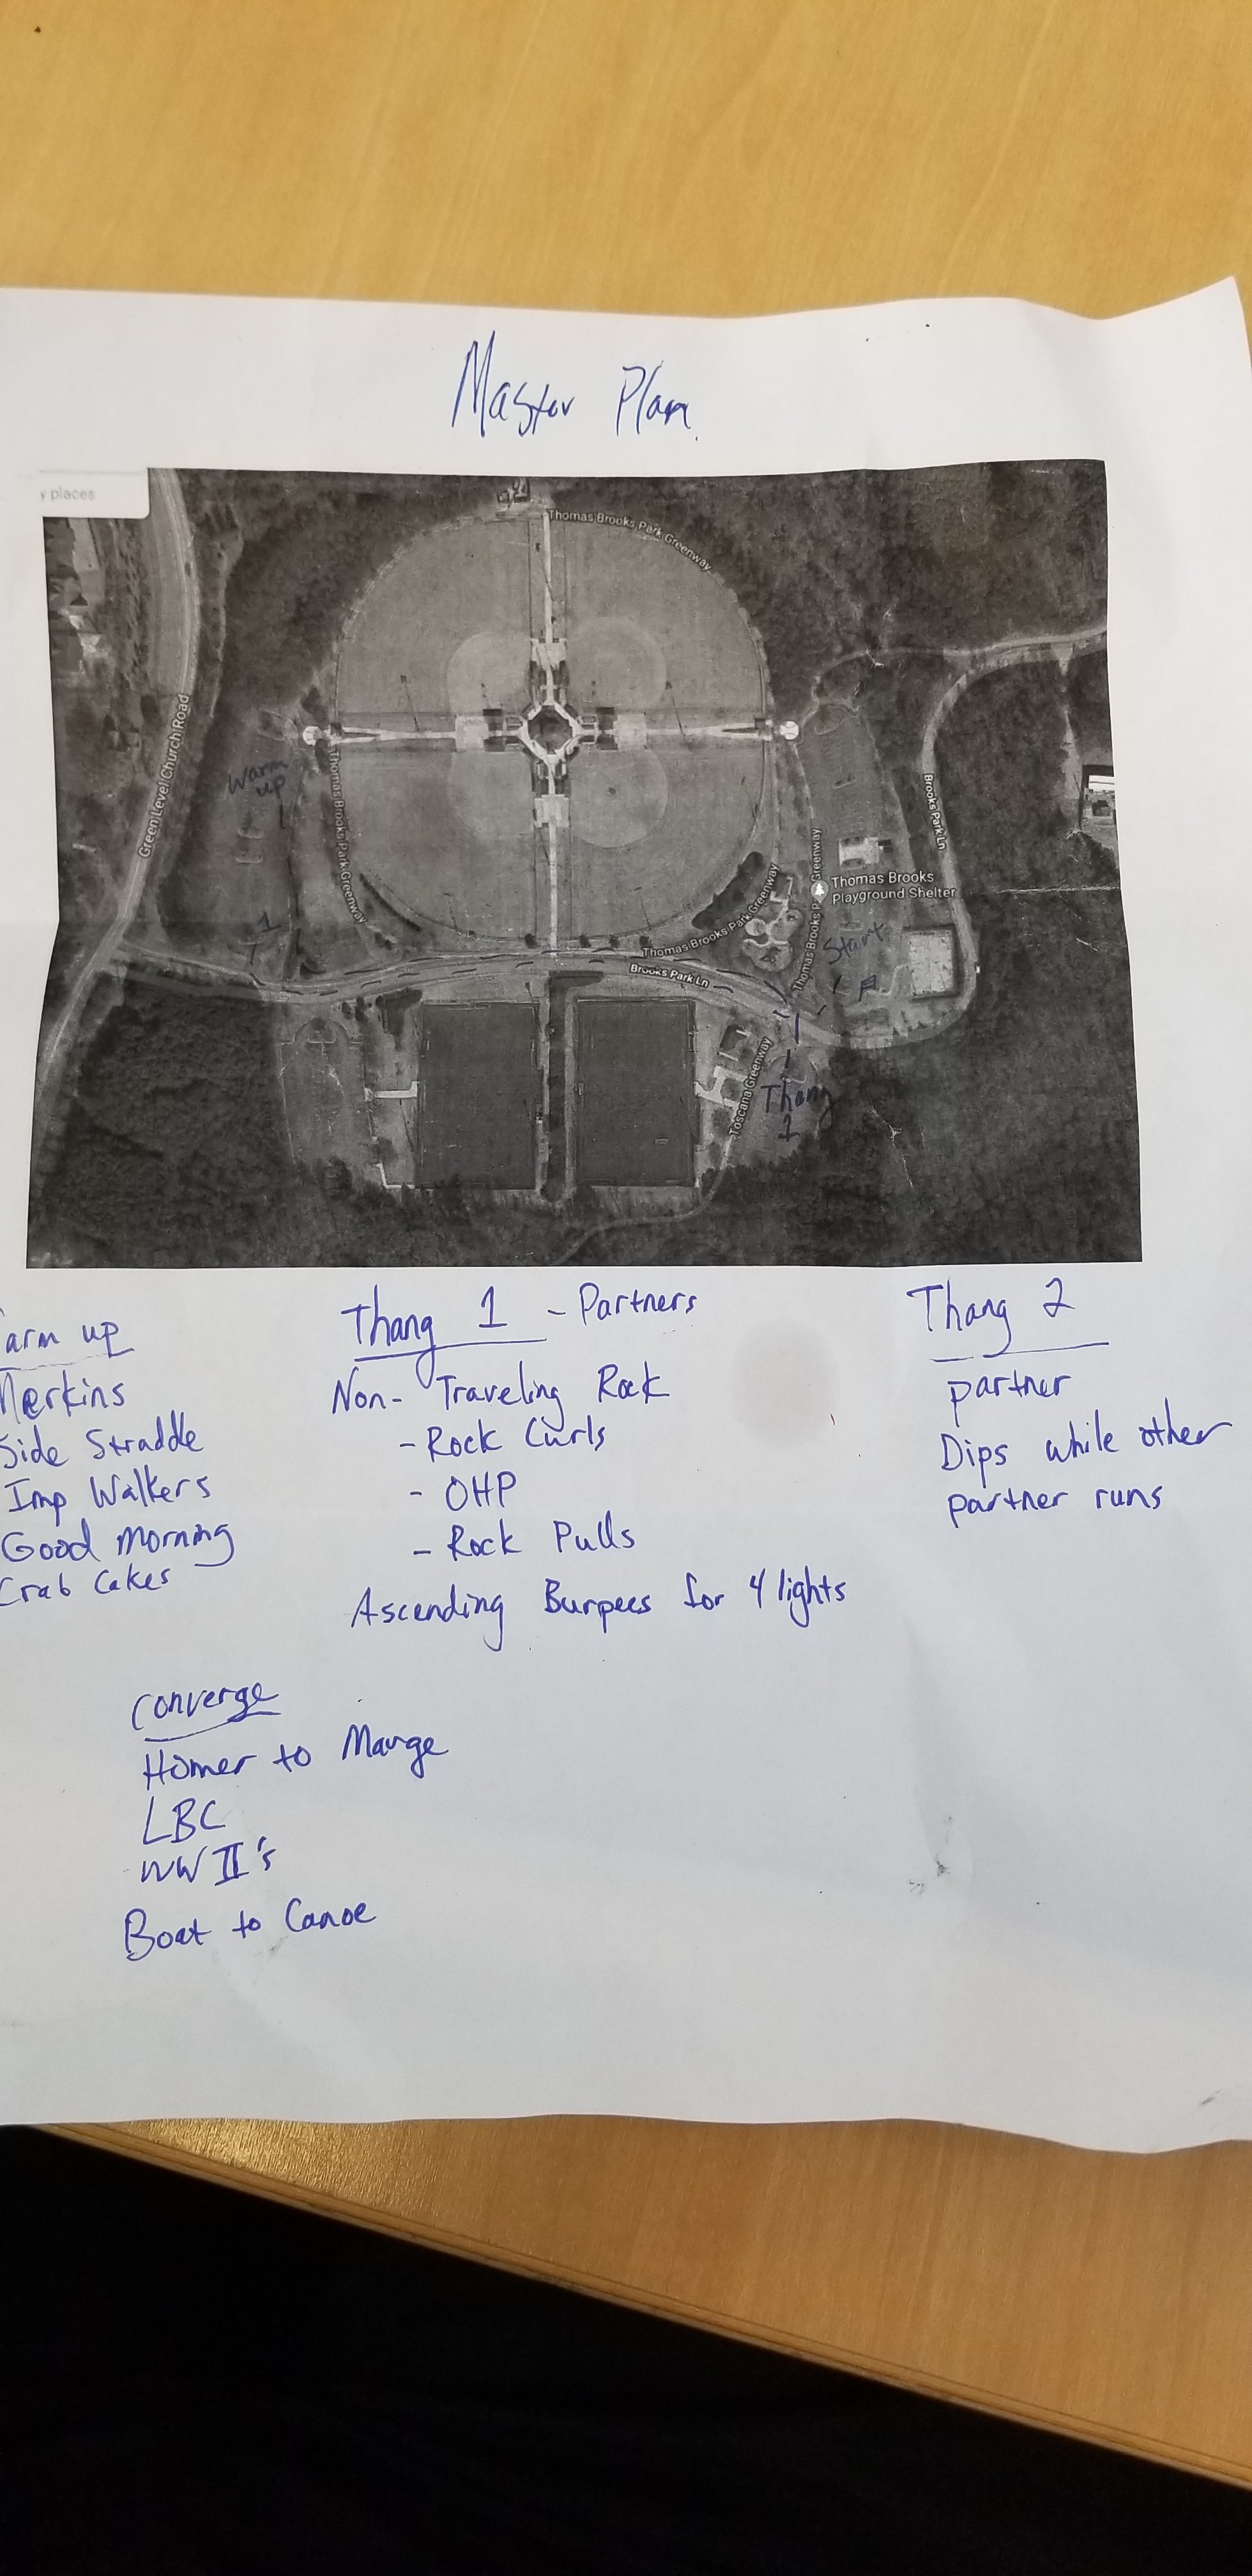 Master Plan
y places
Thomas Brooks Park Greenway
Green Level Church Road
Warm
up
Thomas Brooks Park Greenway
Brooks Park Ln
Thomas Brooks
Playground Shelter
Thomas Brooks P Greenway
Thomas Brooks Park Greenway
Start
1
Brooks Park Ln
Toscana Greenway
Thang
arm up
Merkins
Side Straddle
Imp Walkers
Good Morning
Crab Cakes
Thang 1 - Partners
Non-Traveling Rock
- Rock Curls
- OHP
- Rock Pulls
Ascending Burpees for 4 lights
Thang 2
partner
Dips while other
partner runs
Converge
Homer to Marge
LBC
WWII's
Boat to Canoe